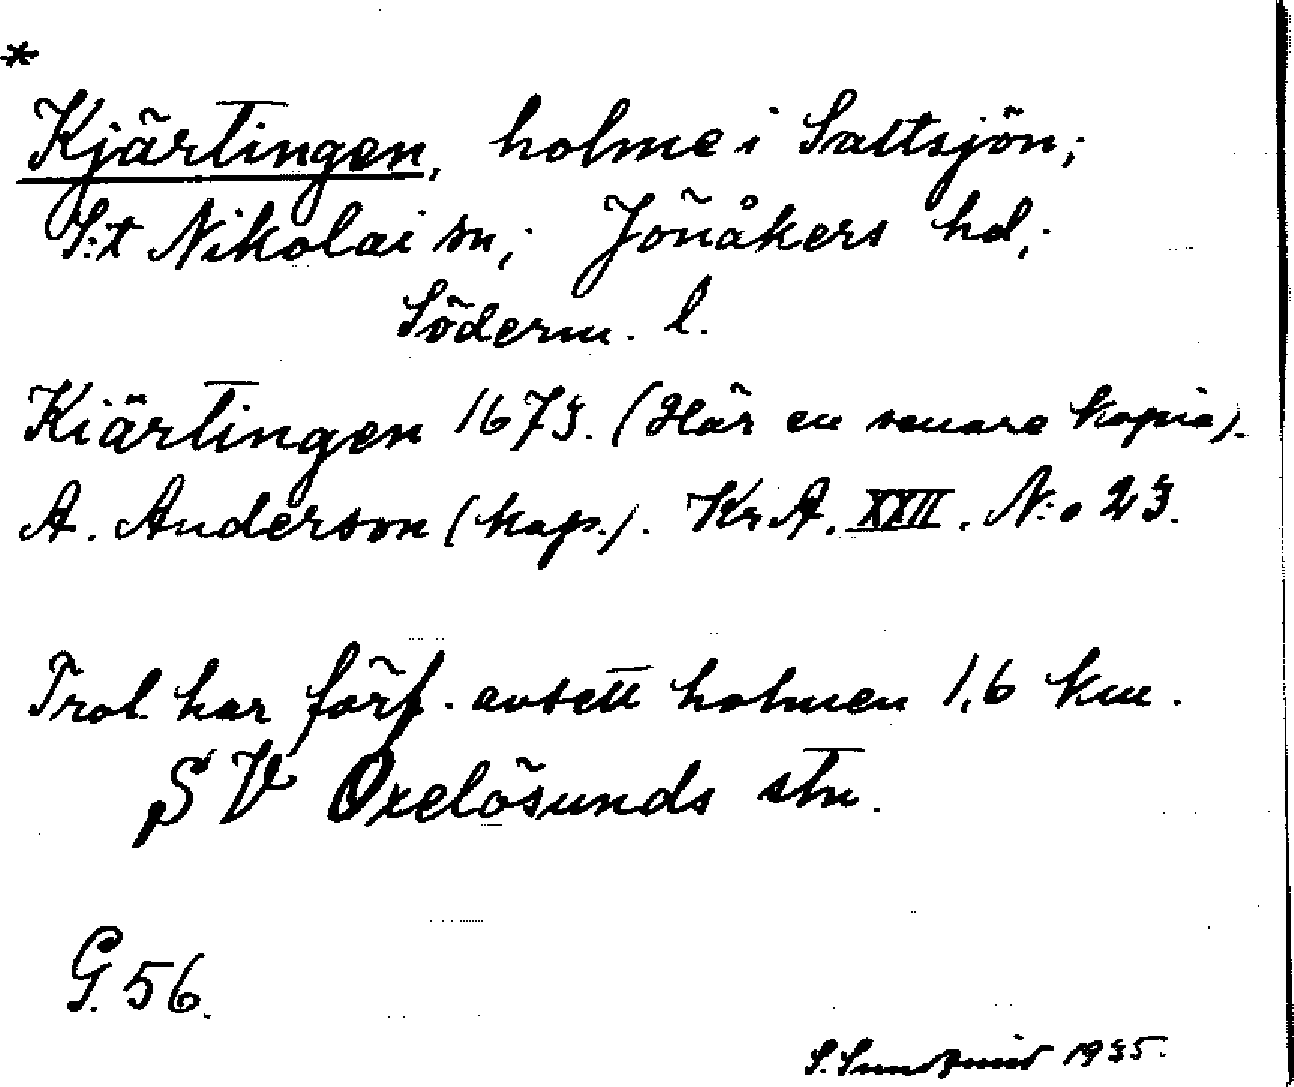 *
Kjärtingen, holme i Saltsjön;
S:t Nikolai sn; Jönåkers hd;
Söderm. l.
Kiärtingen 1673. (Här en senare kopia).
A. Anderson (kap.). Kr. A. XXII. N:o 23.
Trol. har förf. avsett holmen 1,6 km.
SV Oxelösunds stn.
G. 56.
S. Sundqvist 1935.